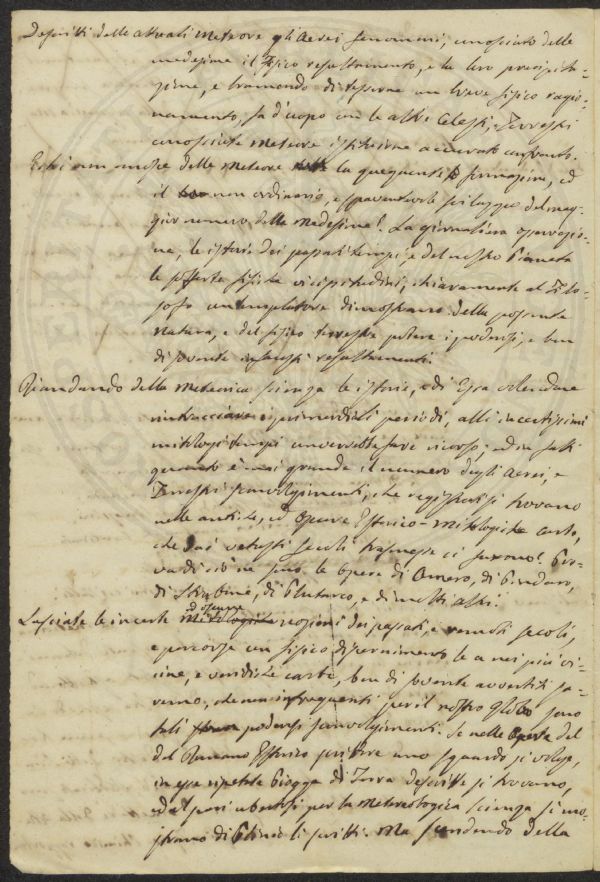 Descritti delle attuali Meteore gli Aerei fenomeni, conosciuto delle
medesime il fisico resultamento, e la loro precipita-
zione, e bramando di tesserne un breve fisico ragio-
namento, fa d'uopo con le altre Celesti, e Terrestri
conosciute Meteore istituirne accurato confronto.
non anche delle Meteore la formazione, ed
il non ordinario, e spaventevole sviluppo del mag-
gior numero delle medesime! La giornaliera osservazio-
ne, le istorie dei passati tempi, e del nostro Pianeta
le sofferte fisiche vicissitudini, chiaramente al Filo-
sofo contemplatore dimostrano della possente
Natura, e del fisico terrestre potere i poderosi, e ben
di sovente infausti resultamenti.
Riandando della Meteorica scienza le istorie, e di Essa volendone
rintracciare i primordiali periodi, alli incertissimi
mitologici tempi converrebbe fare ricorso; ed in fatti
quanto è mai grande il numero degli Aerei, e
Terrestri sconvolgimenti, che registrati si trovano
nelle antiche, ed oscure Istorico-Mitologiche carte,
che dai vetusti secoli trasmesse ci furono! Pro-
va di ciò ne sono le opere di Omero, di Pindaro,
di Strabone, di Plutarco, e di molti altri.
Lasciate le incerte ed oscure nozioni dei passati, e remoti secoli,
e percorse con fisico discernimento le a noi più vi-
cine, e veridiche carte, ben di sovente avvertiti sa-
remo, che non infrequenti per il nostro Globo sono
tali poderosi sconvolgimenti. Se nelle Opere del
del Romano Istorico scrittore uno sguardo si volge,
in esse ripetute Piogge di Terra descritte si trovano,
ed al pari ubertosi per la Meteorologica scienza si mo-
strano di Plinio li scritti. Ma scendendo della